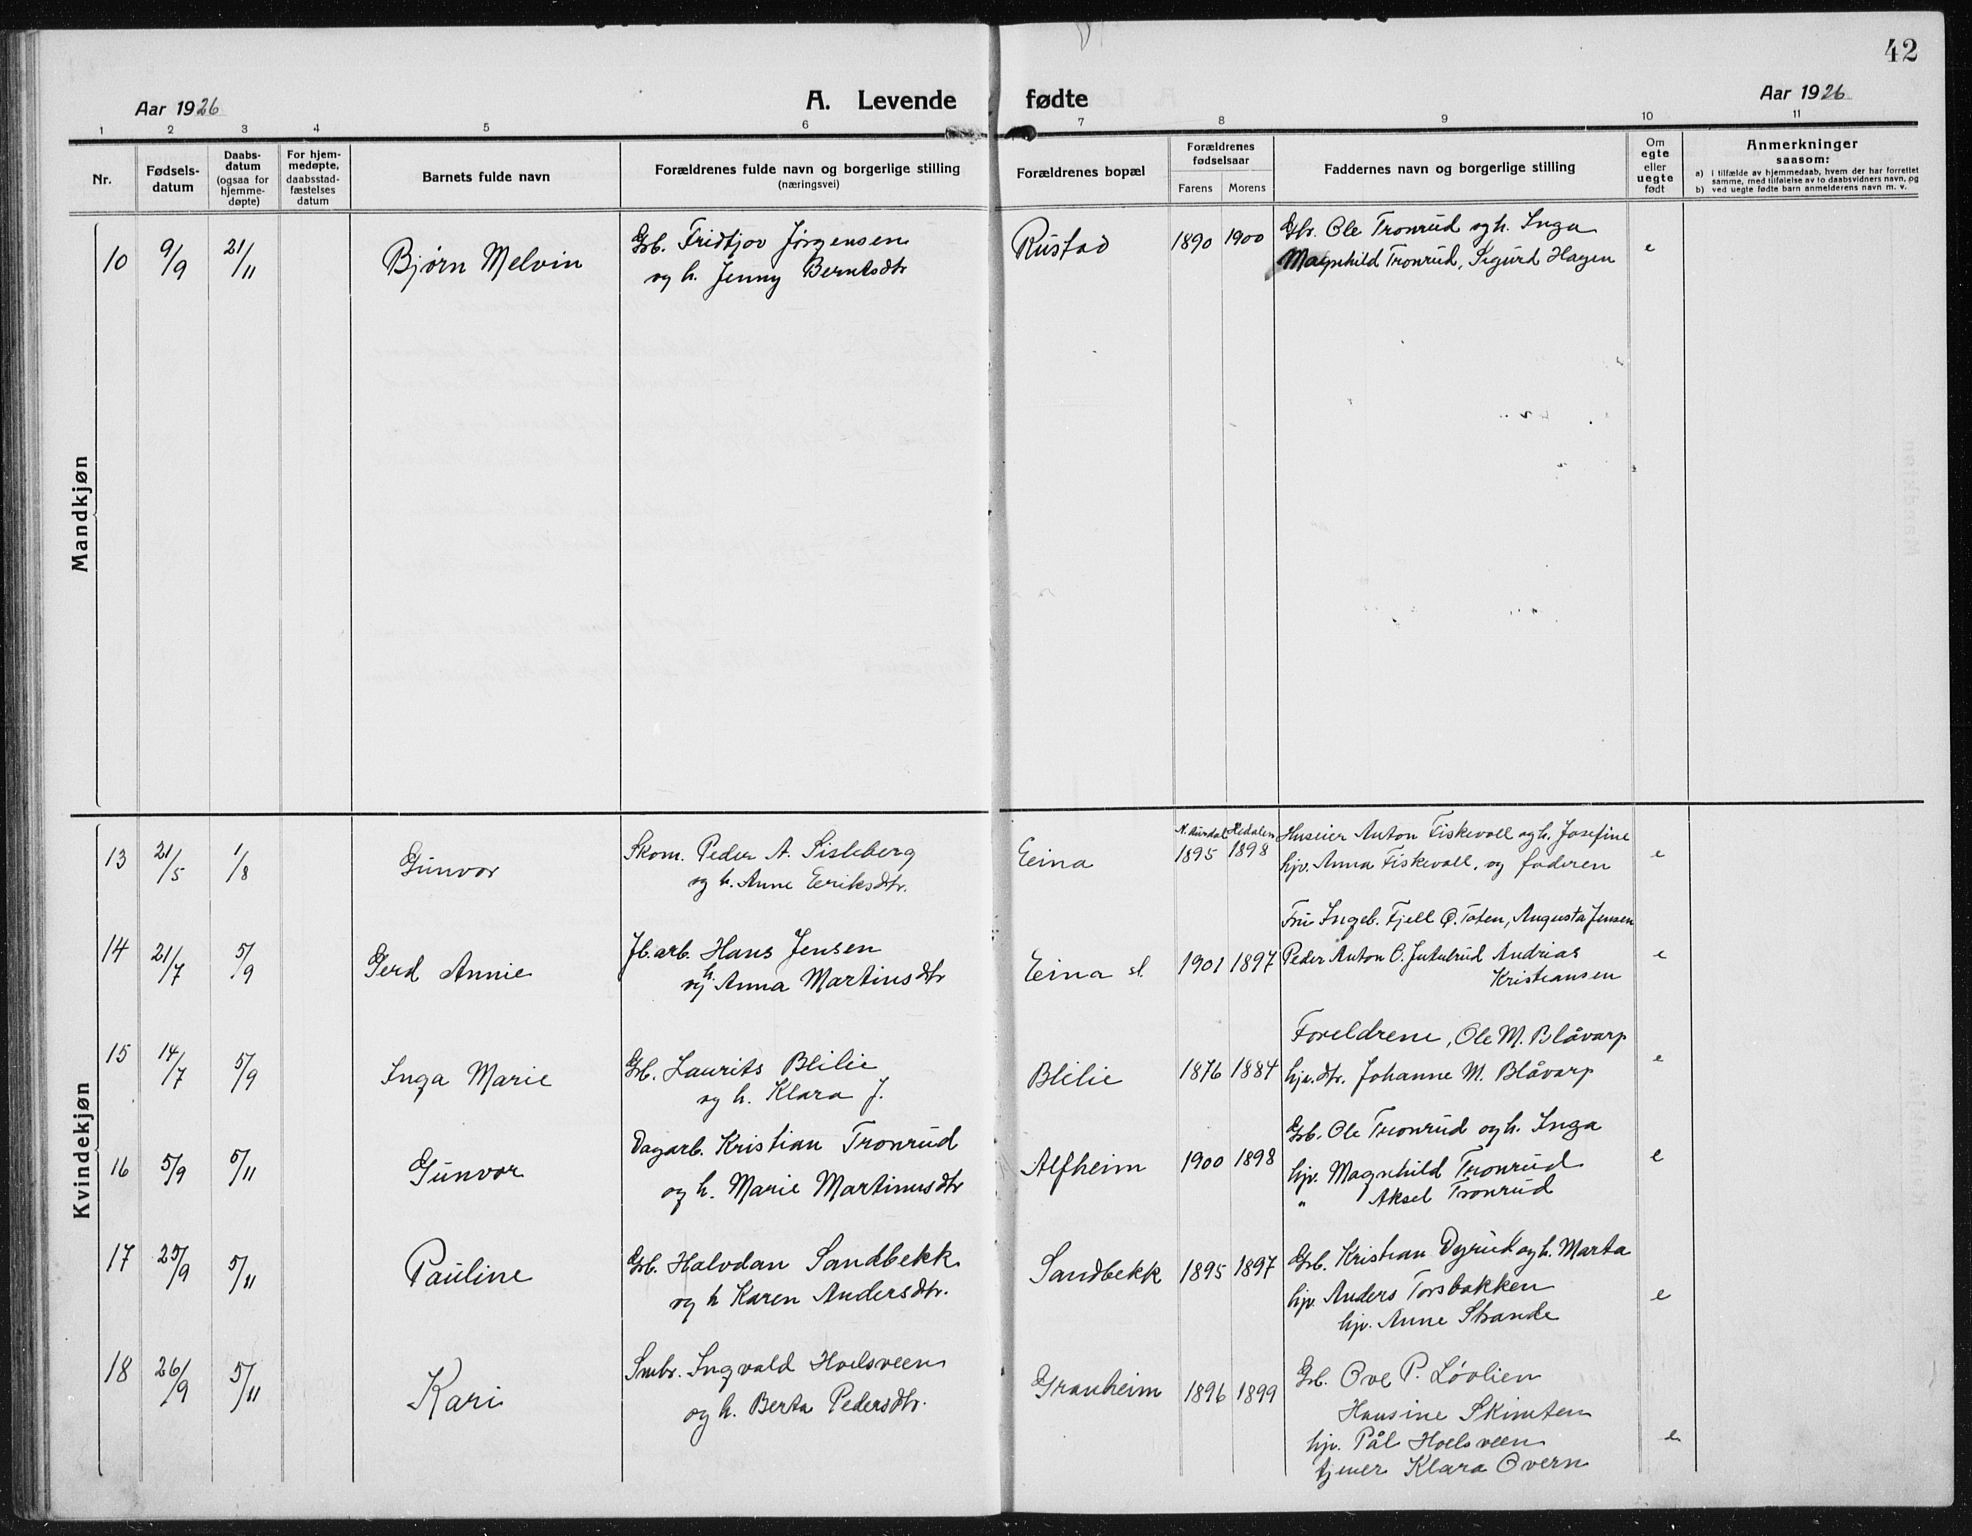 42
Aar 1926
A. Levende fødte
Aar 1926
1 2 3 4 5 6 7 8 9 10 11
Nr.
Fødsels-
datum
Daabs-
datum
(ogsaa for
hjemme-
døpte)
For hjem-
medøpte,
daabsstad-
fæstelses
datum
Barnets fulde navn
Forældrenes fulde navn og borgerlige stilling
(næringsvei)
Forældrenes bopæl
Forældrenes
fødselsaar
Farens Morens
Faddernes navn og borgerlige stilling
Om
egte
eller
uegte
født
Anmerkninger
saasom:
a) i tilfælde av hjemmedaab, hvem der har forrettet
samme, med tilføielse av to daabsvidners navn, og
b) ved uegte fødte barn anmelderens navn m. v.
Mandkjøn
10 9/9 21/11 Bjørn Melvin
Gb. Fridtjov Jørgensen
og h. Jenny Berntsdtr
Rustad 1890 1900
Gbr. Ole Tronrud og h. Inga
Magnhild Tronrud, Sigurd Hagen
e
Kvindekjøn
13 21/5 1/8 Gunvor
Skom. Peder A. Sisleberg
og h. Anne Eeriksdtr.
Eina
N. Aurdal Hedalen
1895 1898
Huseier Anton Fiskevoll og h. Josefine
hjv. Anna Fiskevoll, og faderen
e
14 21/7 5/9 Gerd Annie
Jb. arb. Hans Jensen
og h. Anna Martinsdtr
Eina st. 1901 1897
Fru Ingeb. Fjell Ø. Toten, Augusta Jensen
Peder Anton O. Jutulrud Andrias
Kristiansen
e
15 14/7 5/9 Inga Marie
Gb. Laurits Blilie
og h. Klara J.
Blilie 1876 1884
Foreldrene, Ole M. Blåvarp
hjv. dtr. Johanne M. Blåvarp
e
16 5/9 5/11 Gunvor
Dagarb. Kristian Tronrud
og h. Marie Martinusdtr
Alfheim 1900 1898
Gb. Ole Tronrud og h. Inga
hjv. Magnhild Tronrud
" Aksel Tronrud
e
17 25/9 5/11 Pauline
Gb. Halvdan Sandbekk
og h Karen Andersdtr.
Sandbekk 1895 1897
Gb. Kristian Dyrud og h. Marta
hjv. Anders Torsbakken
hjv. Anne Strande
e
18 26/9 5/11 Kari
Smbr. Ingvald Hoelsveen
og h. Berta Pedersdtr.
Granheim 1896 1899
Gb. Ove P. Løvlien
Hansine Skimten
hjv. Pål Hoelsveen
tjener Klara Overn
e